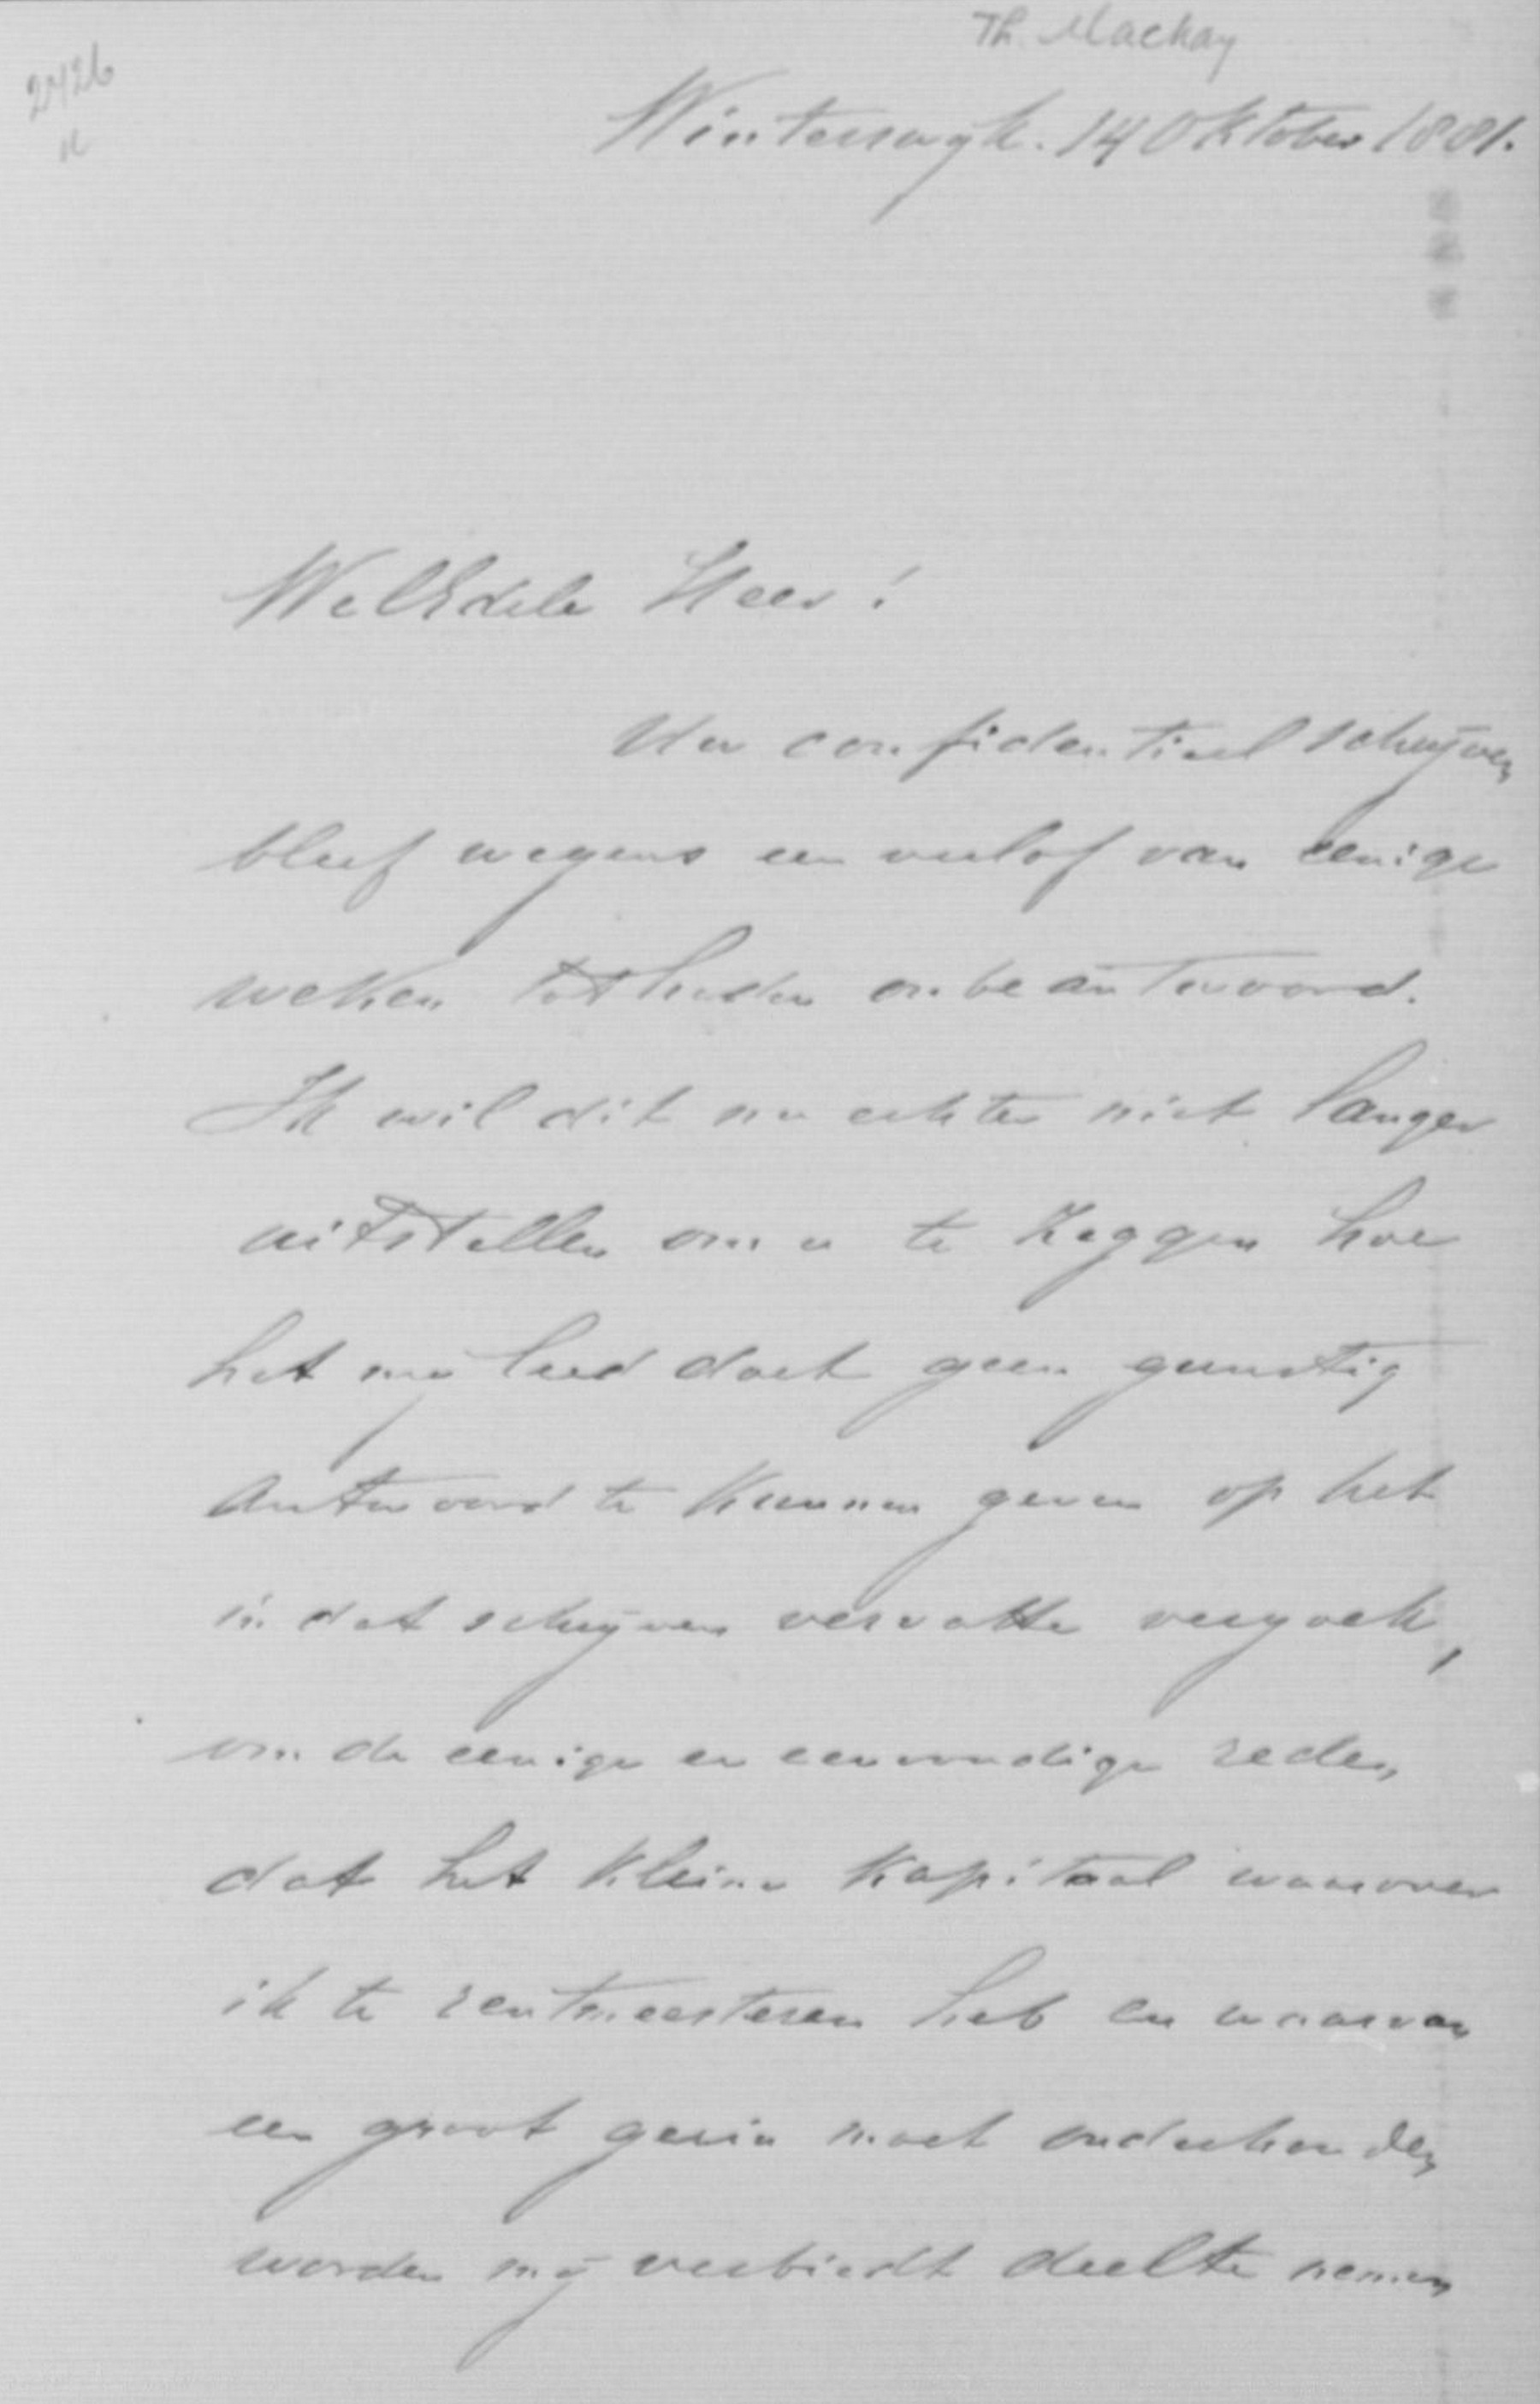 Th. Mackay
2426
Winterswyk. 14 Oktober 1881.
WelEdele Heer!
Uw confidentieel schrijven
bleef wegens een verlof van eenige
weken tot heden onbeantwoord.
Ik wil dit nu echter niet langer
uitstellen om u te zeggen hoe
het mij leed doet geen gunstig
antwoord te kunnen geven op het
in dat schrijven vervatte verzoek,
om de eenige en eenvoudige reden,
dat het kleine kapitaal waarover
ik te rentmeesteren heb en waarvan
een groot gezin moet onderhouden
worden mij verbiedt deel te nemen